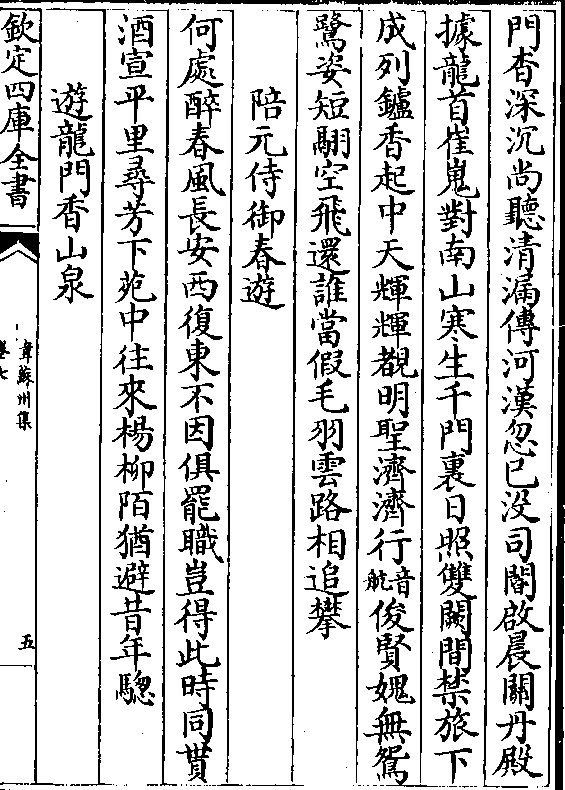 門杳深沉尚聽清漏傳河漢忽已没司閽啟晨關丹殿
據龍首崔嵬對南山寒生千門裏日照雙闕間禁旅下
成列鑪香起中天輝輝覩明聖濟濟行音航俊賢媿無鴛
鷺姿短翮空飛還誰當假毛羽雲路相追攀
陪元侍御春遊
何處醉春風長安西復東不因俱罷職豈得此時同貰
酒宣平里尋芳下苑中往來楊柳陌猶避昔年驄
遊龍門香山泉
欽定四庫全書
韋蘇州集
卷七
五